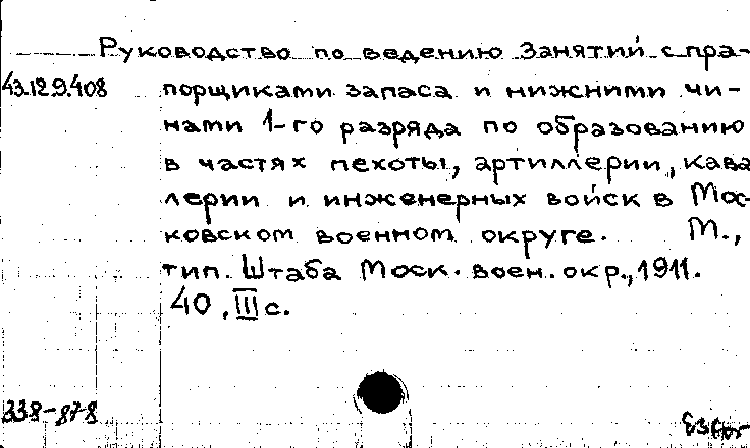 Руководство по ведению занятий с пра-
43.12.9.408 порщиками запаса и нижними чи-
нами 1-го разряда по образованию
в частях пехоты, артиллерии, кава
лерии и инженерных войск в Мос-
ковском военном округе. М.,
тип. Штаба Моск. воен. окр., 1911.
40, III с.
338-878